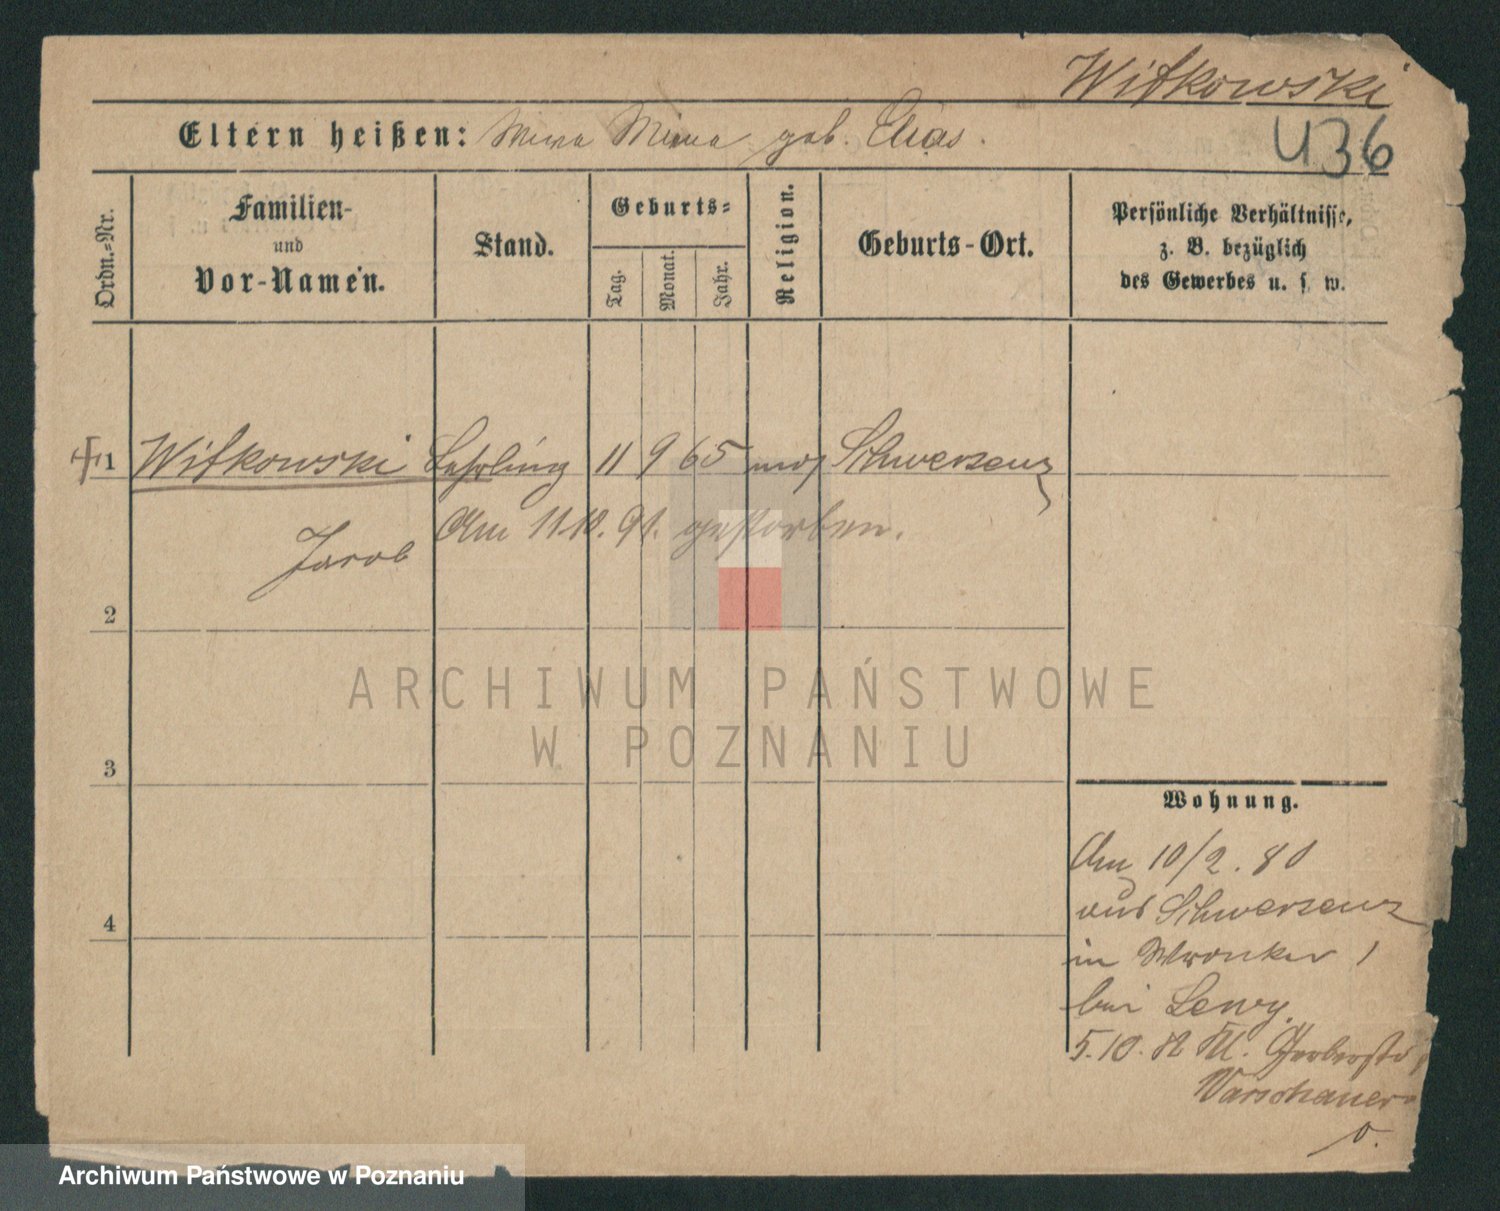 Witkowski
436
Eltern heißen: Mina geb. Elias.
Ordn.=Nr.
Familien-
und
Vor-Namen.
Stand.
Geburts=
Tag.
Monat.
Jahr.
Religion.
Geburts-Ort.
Persönliche Verhältnisse,
z. B. bezüglich
des Gewerbes u. s. w.
1 Witkowski Lehrling 11 9 65 mos Schwersenz
Jacob
Am 11.10.91. gestorben.
2
3
4
Wohnung.
Am 10/2.80
aus Schwersenz
in Wronker 1
bei Lewy.
5.10.82 Kl. Gerberstr
Warschauer
ARCHIWUM PAŃSTWOWE
W POZNANIU
Archiwum Państwowe w Poznaniu